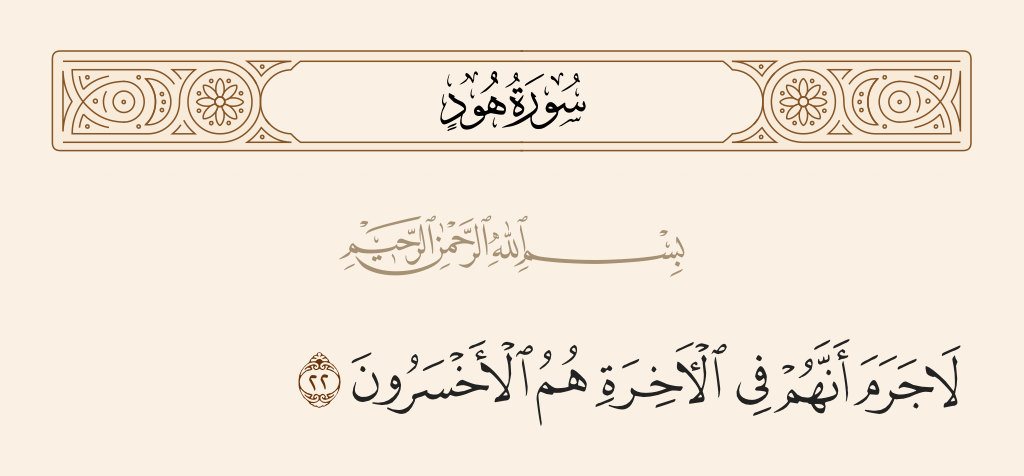 سُورَةُ هُودٍ
بِسْمِ ٱللَّهِ ٱلرَّحْمَٰنِ ٱلرَّحِيمِ
لَا جَرَمَ أَنَّهُمْ فِى ٱلْـَٔاخِرَةِ هُمُ ٱلْأَخْسَرُونَ ٢٢